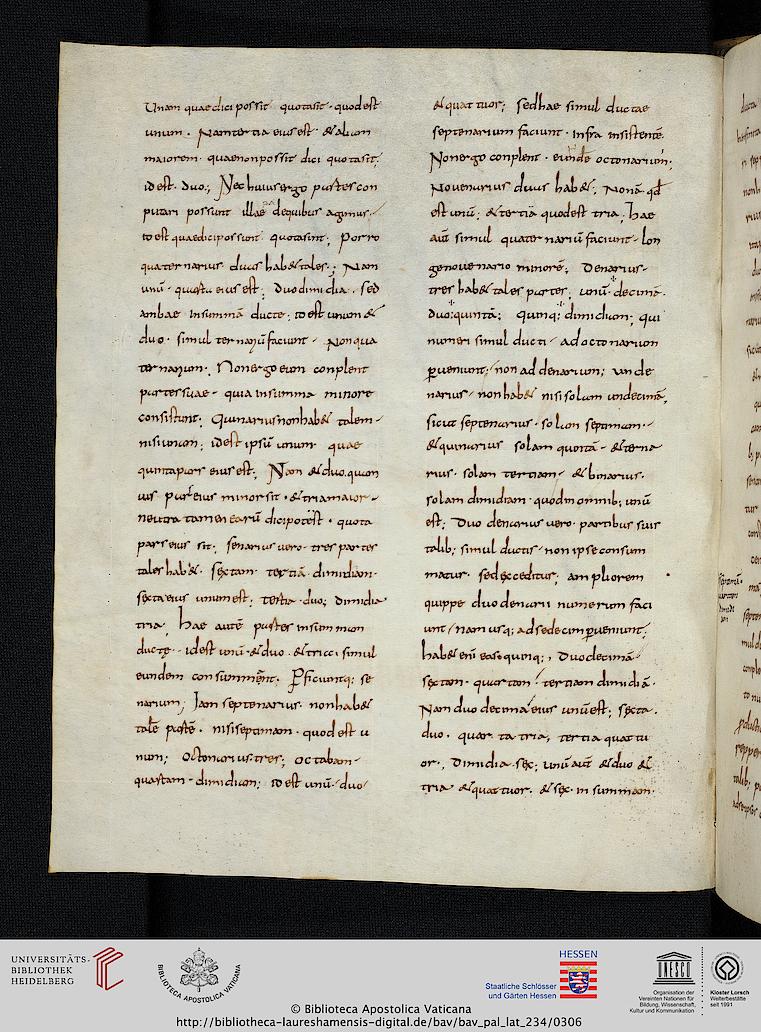 Unam quae dici possit quota sit · quod est
unum · Nam tertia eius est · & alium
maiorem · quae non possit dici quota sit;
id est · duo; Nec huius ergo partes con
putari possunt illae de quibus agimus ·
id est quae dici possunt quotae sint; Porro
quaternarius duas hab& tales; Nam
unū · quarta eius est; duo dimidia · sed
ambae in summā ductę; id est unum &
duo · simul ternariū faciunt · Non qua
ternarium · Non ergo eum conplent
partes suae · quia in summa minore
consistunt; Quinarius non hab& talem ·
nisi unam; id est ipsū unum · quae
quinta pars eius est; Nam & duo quam
uis pars eius minor sit · & tria maior ·
neutra tamen earū dici potest · quota
pars eius sit; Senarius uero · tres partes
tales hab& · sextam · tertiā · dimidiam ·
sexta eius unum est; tertia · duo; dimidia
tria; hae autē partes in summam
ductę · id est unū · & duo · & tria · simul
eundem consummant · Perficiuntq; se
narium; Iam septenarius · non hab&
talē partē · nisi septimam · quod est u
num; Octonarius tres; octabam ·
quartam · dimidiam; id est unū · duo ·
& quattuor; sed hae simul ductae
septenarium faciunt · infra insistente ·
Non ergo conplent · eundē octonarium;
Nouenarius duas hab&; Nonā qd
est unū; & tertiā quod est tria; hae
aut simul quaternariū faciunt · lon
ge nouenario minorē; Denarius ·
tres hab& tales partes; unū · decimā ·
duo · quintā; quinq; dimidium; qui
numeri simul ducti · ad octonarium
ꝑueniunt; non ad denarium; unde
narius · non hab& nisi solam undecimā;
sicut septenarius · solam septimam ·
& quinarius solam quintā · & terna
rius · solam tertiam · & binarius ·
solam dimidiam · quod in omnib; unū
est; Duodenarius uero · partibus suis
talib; simul ductis · non ipse consum
matur · sed exceditur; ampliorem
quippe duodenarii numerum faci
unt · nam usq; ad sedecim ꝑueniunt;
hab& enī eas · quinq; duodecimā ·
sextam · quartam · tertiam dimidiā ·
Nam duodecima eius unū est; sexta ·
duo · quarta tria; tertia quattu
or; dimidia · sex; unū aut & duo &
tria & quattuor · & sex · in summam ·
UNIVERSITÄTS-
BIBLIOTHEK
HEIDELBERG
BIBLIOTECA APOSTOLICA VATICANA
HESSEN
Staatliche Schlösser
und Gärten Hessen
UNESCO
Organisation der
Vereinten Nationen für
Bildung, Wissenschaft,
Kultur und Kommunikation
Kloster Lorsch
Welterbestätte
seit 1991
© Biblioteca Apostolica Vaticana
http://bibliotheca-laureshamensis-digital.de/bav/bav_pal_lat_234/0306